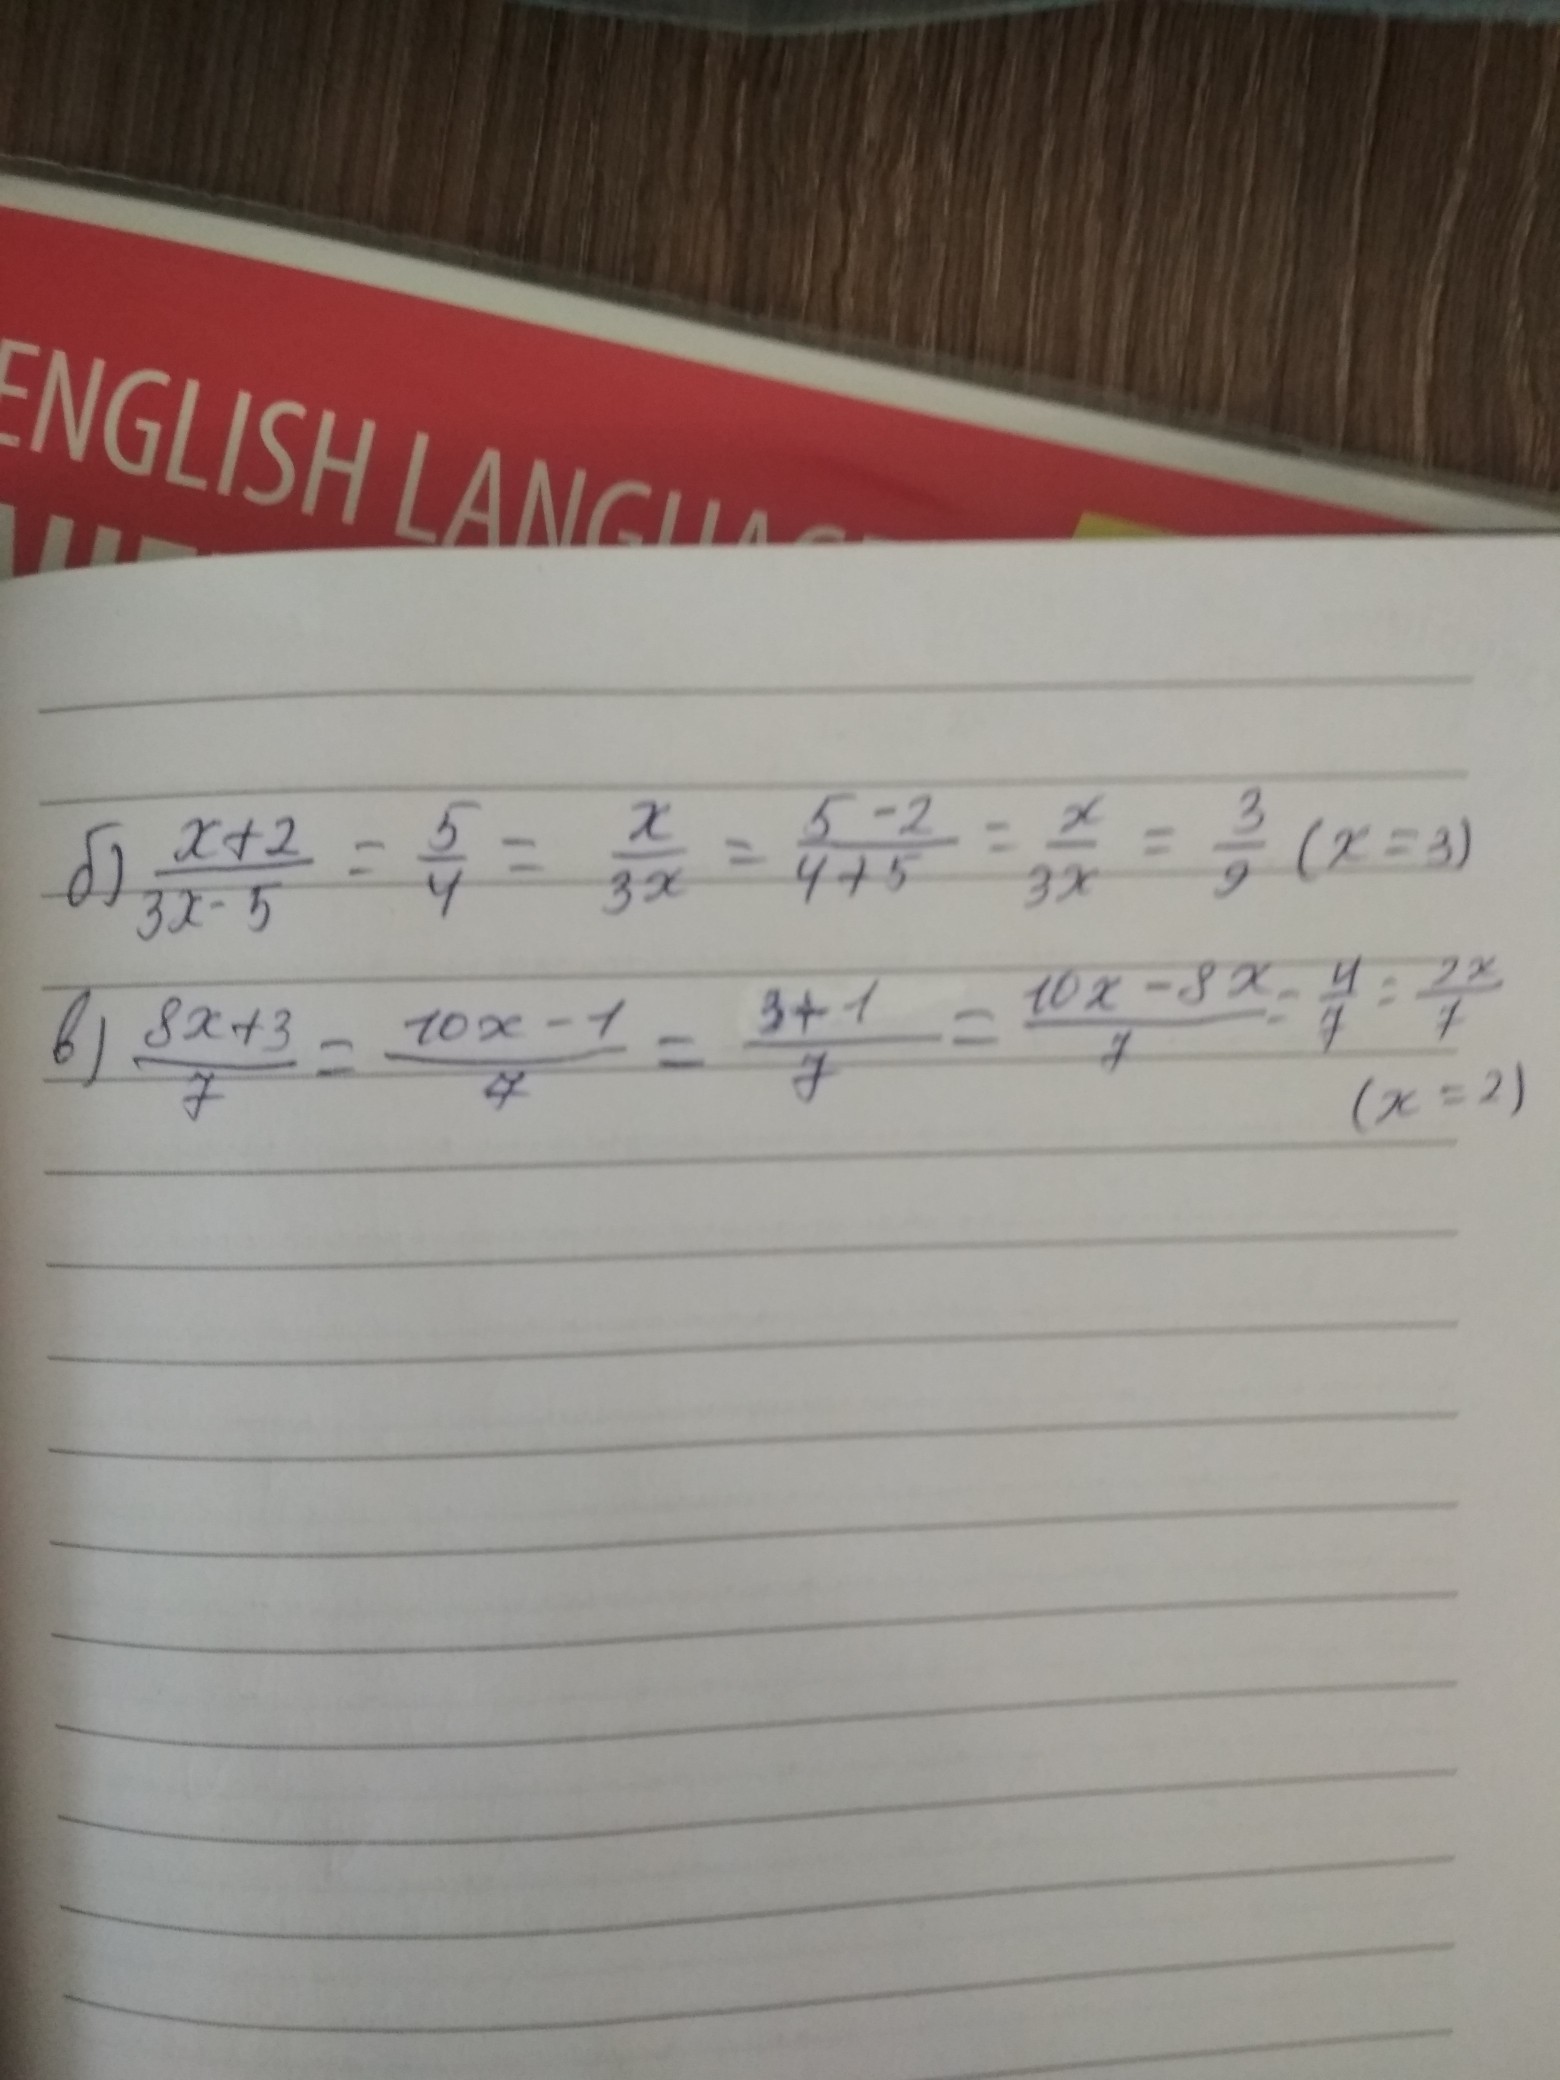 ENGLISH LANGUAGE
б) (x+2)/(3x-5) = 5/4 = x/3x = (5-2)/(4+5) = x/3x = 3/9 (x=3)
в) (8x+3)/7 = (10x-1)/7 = (3+1)/7 = (10x-8x)/7 = 4/7 = 2x/7
(x=2)